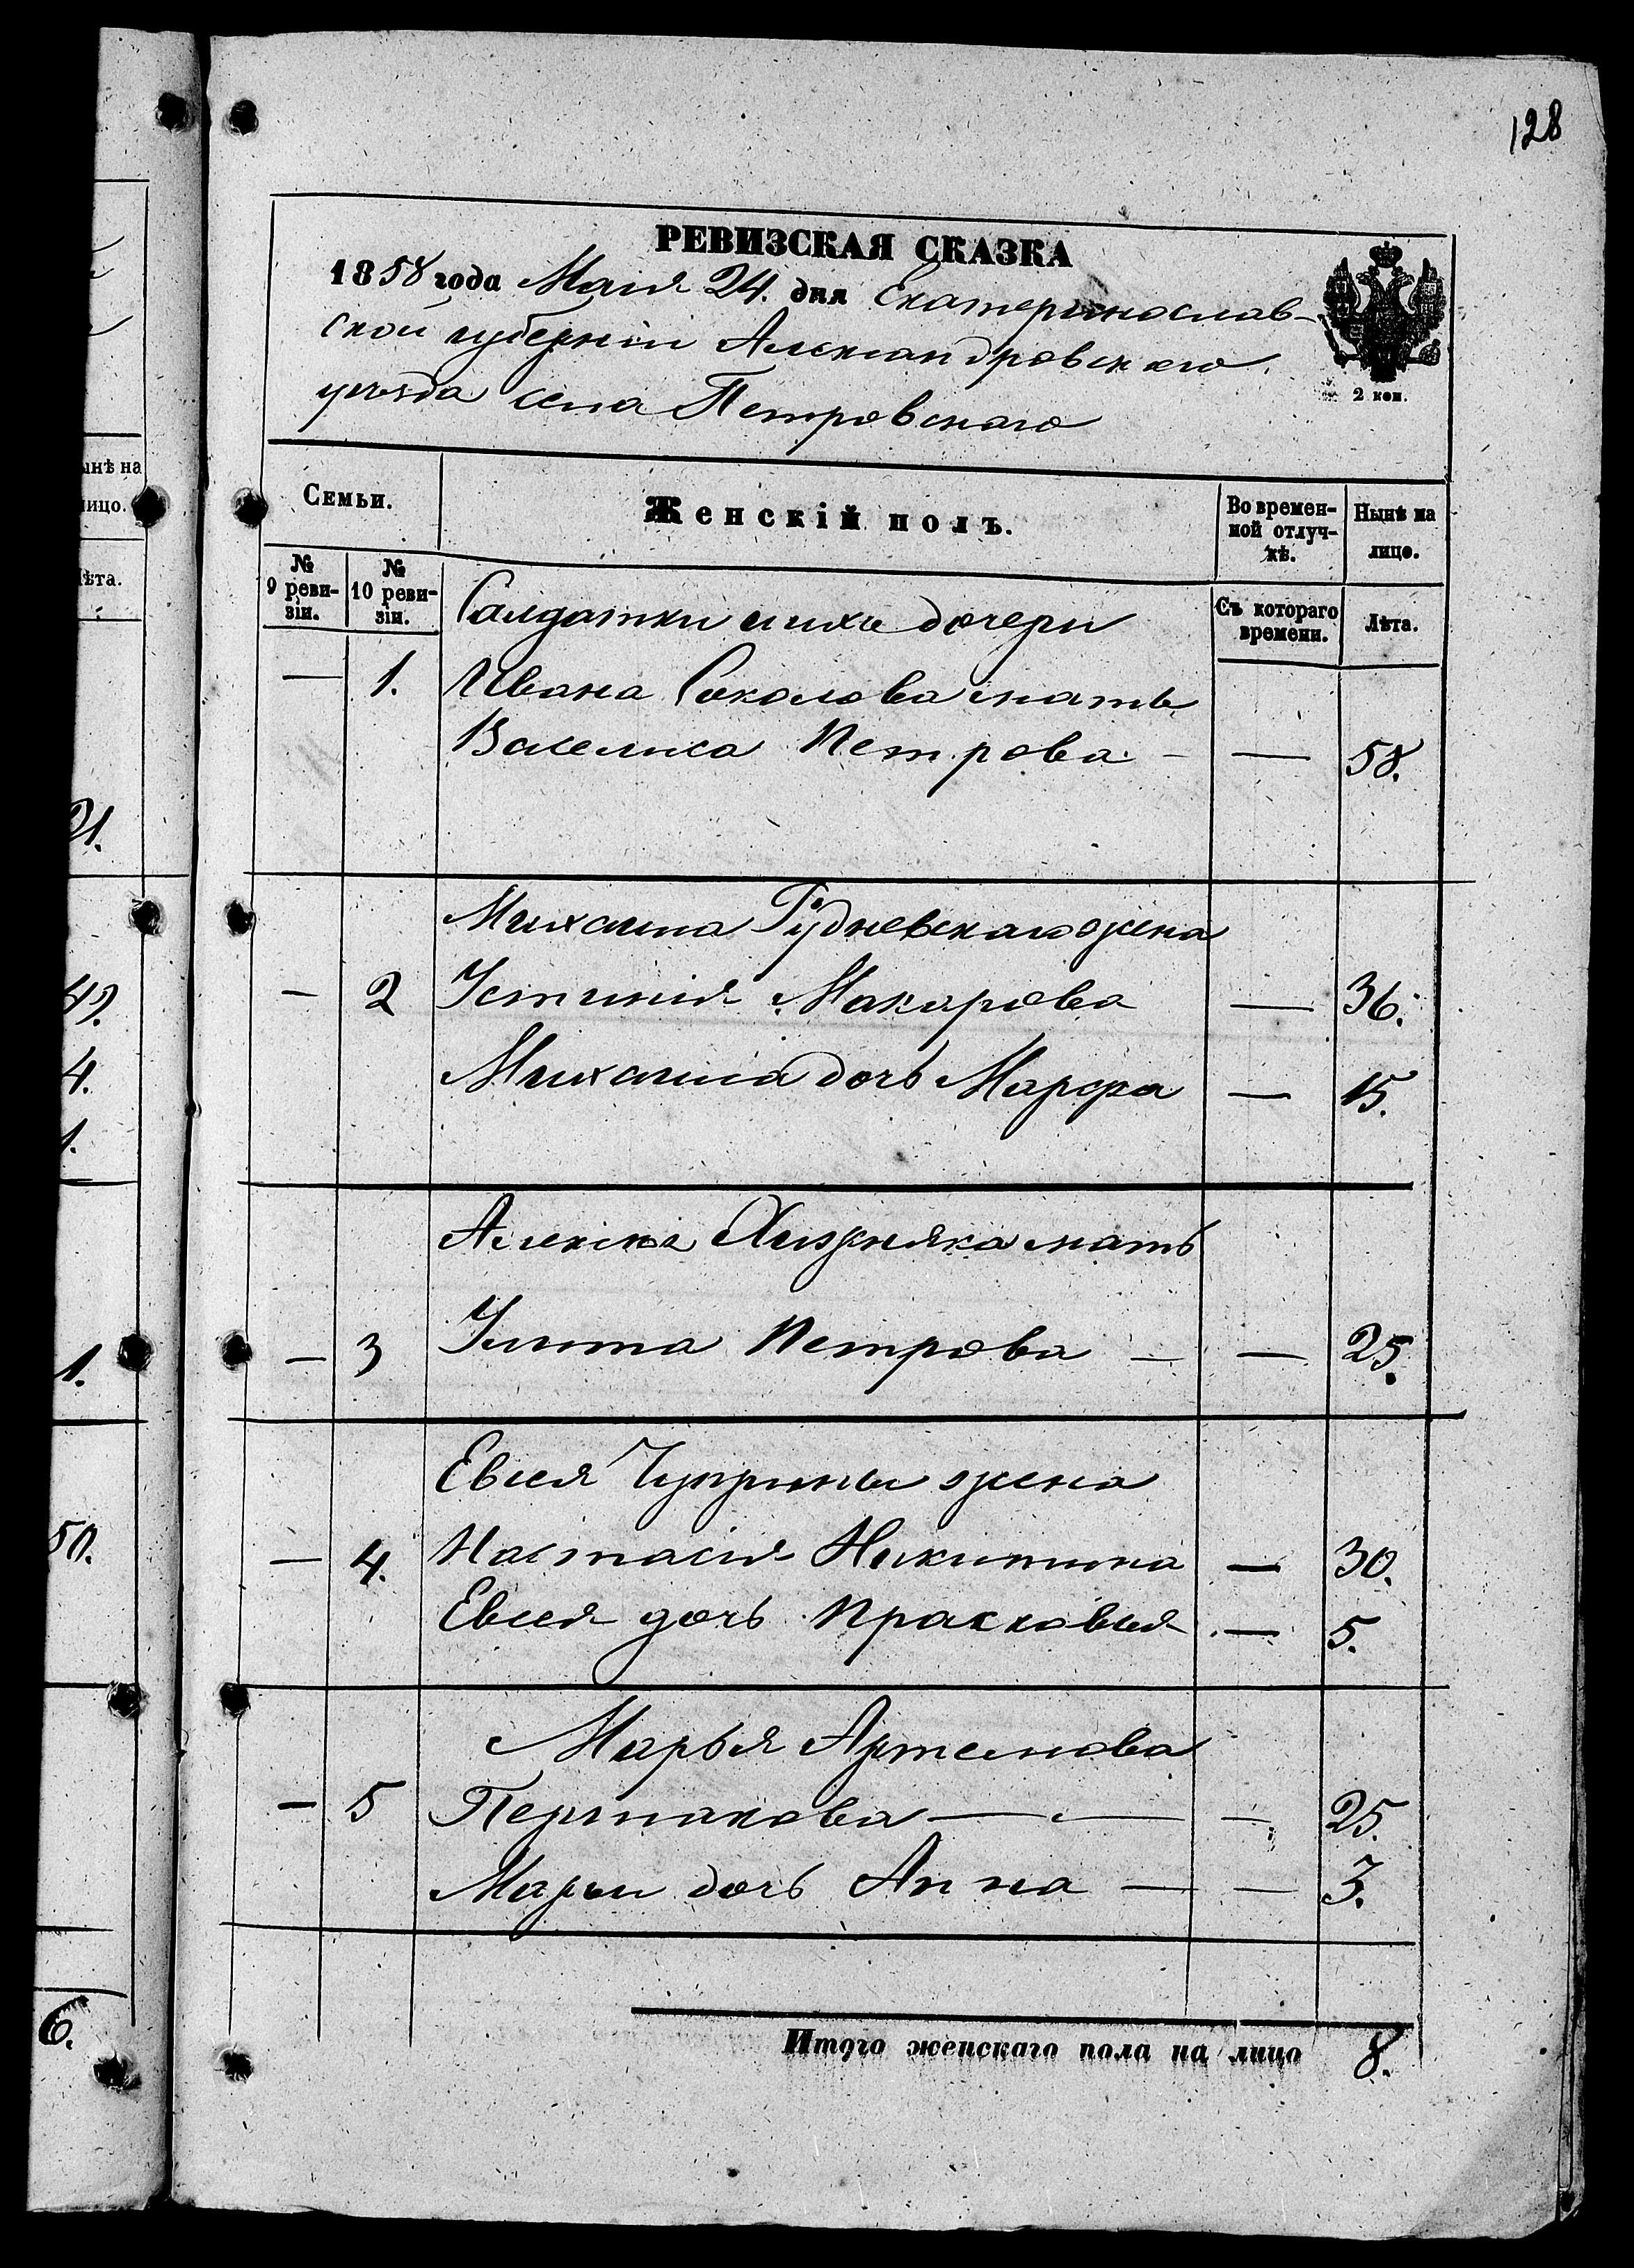 128
РЕВИЗСКАЯ СКАЗКА
1858 года Маия 24. дня Екатеринослав-
ской губерніи Александровскаго
уѣзда села Петровскаго
2 коп.
Семьи.
Женскій полъ.
Во времен-
ной отлуч-
кѣ.
Нынѣ на
лицо.
№
9 реви-
зіи.
№
10 реви-
зіи.
Съ котораго
времени.
Лѣта.
Салдатки и ихъ дочери
— 1. Ивана Соколова мать
Василиса Петрова — — 58.
Михаила Рудневскаго жена
— 2 Устинія Макарова — 36.
Михаила дочь Марфа — 15.
Алексѣя Хижняка мать
— 3 Улита Петрова — — 25.
Евсея Чуприны жена
— 4. Настасія Никитина — 30.
Евсея дочь Прасковья — 5.
Марья Артемова
— 5 Пермакова — — — 25.
Марьи дочь Анна — — 3.
Итого женскаго пола на лицо 8.
ынѣ на
лицо.
ѣта.
21.
49.
4.
1.
1.
50.
6.